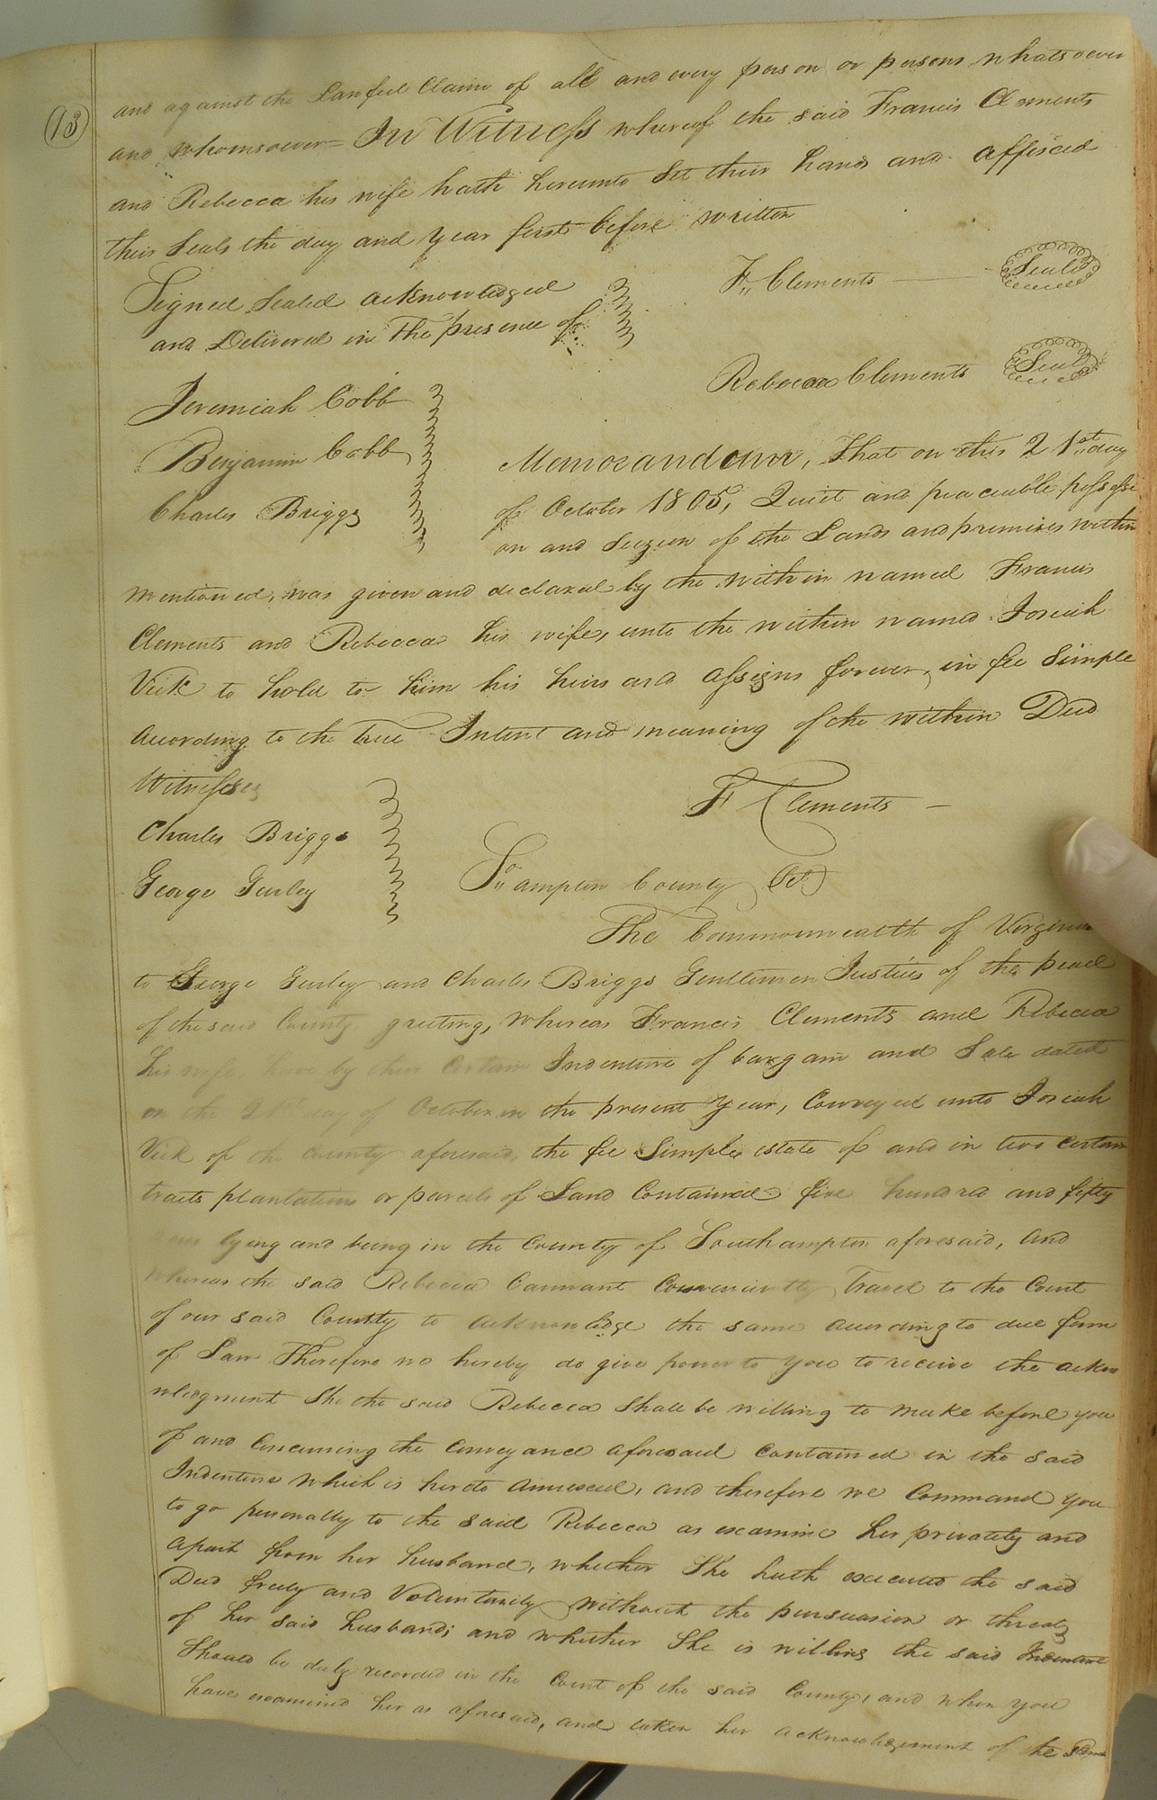 13
and against the Lawful Claim of all and every person or persons whatsoever
and whomsoever = In Witness whereof the said Francis Clements
and Rebecca his wife hath hereunto Set their hands and affixed
their Seals the day and year first before written
Signed Sealed acknowledged
and Delivered in The presence of
F,, Clements
Seal
Rebecca Clements
Seal
Jeremiah Cobb
Benjamin Cobb
Charles Briggs
Memorandum, That on this 21st day
of October 1805, Quiet and peaceable possessi
on and Seizen of the Lands and premises within
mentioned, was given and declared by the within named Francis
Clements and Rebecca his wife, unto the within named Josiah
Vick to hold to him his heirs and assigns forever, in fee Simple
According to the True Intent and meaning of the within Deed
Witnesses
F Clements
Charles Briggs
George Gurley
So,,ampton County
The Commonwealth of Virginia
to George Gurley and Charles Briggs Gentlemen Justices of the peace
of the said County greeting, Whereas Francis Clements and Rebecca
his wife have by their Certain Indenture of bargain and Sale dated
on the day of October in the present Year, Conveyed unto Josiah
Vick of the County aforesaid, the fee Simple estate of and in two certain
tracts plantations or parcels of Land Contained five hundred and fifty
lying and being in the County of Southampton aforesaid, and
Whereas the said Rebecca Cannant Conveniently Travel to the Court
of our said County to acknowledge the same according to due form
of Law Therefore we hereby do give power to you to receive the ackno
wledgment She the said Rebecca Shall be willing to make before you
of and Concerning the Conveyance aforesaid contained in the said
Indenture which is hereto annexed, and therefore we Command you
to go personally to the said Rebecca as examine her privately and
apart from her husband, whether She hath executed the said
Deed freely and Voluntarily without the persuasion or threats
of her said husband; and whether She is willing the said Indenture
Should be duly recorded in the Court of the said County, and when you
have examined her as aforesaid, and taken her acknowledgement of the